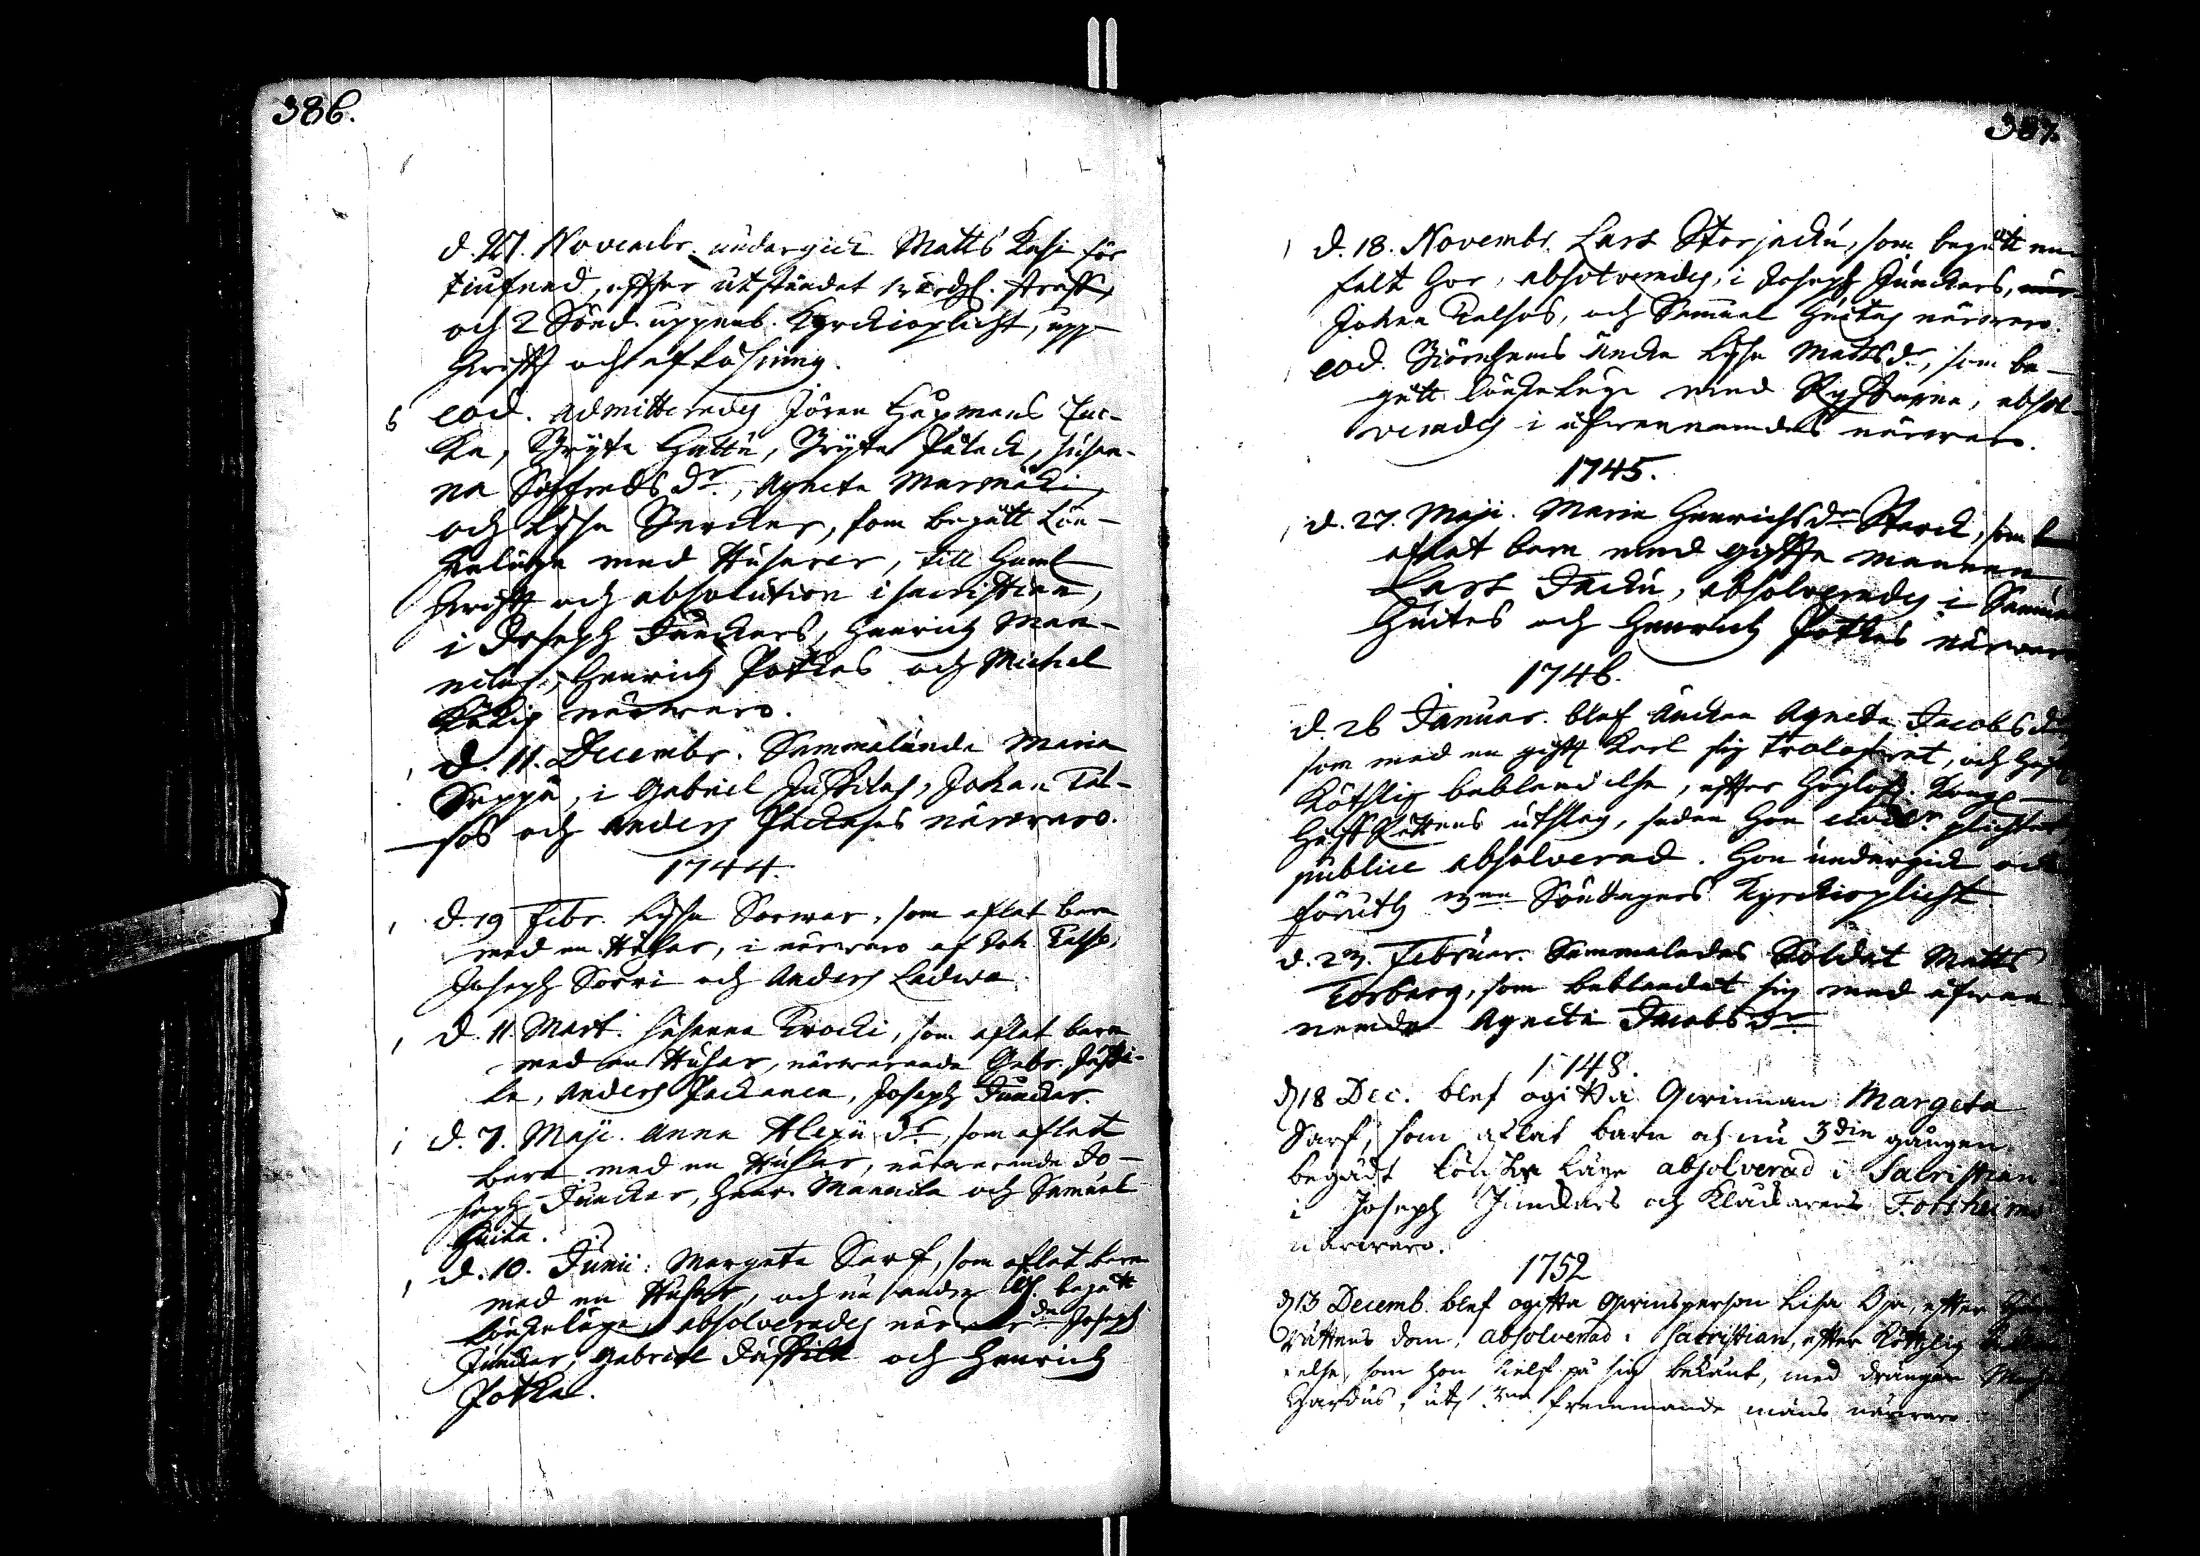 386.
d. 27. Novembr. undergick Matts Kasi för
tiufnad, efter utståndet werdzl. straff,
och 2 Sönd. uppenb. Kyrckioplicht, upp-
skrifft och aflösning.
6 eod. admitterades Jören Hapmans
ka, Bryta Hattu, Bryta Påtack, Susan-
na Sigfreds dr., Agneta Marmäki,
och Lisa Sercker, som begått Lön-
skaläge med Husarer, till Heml.
skrifft och absolution i sacristian,
i Joseph Junckers, Henrich Man-
nilas, Henrich Potkas och Michel
närwaro.
1 d. 11. Decembr. Sammalunda Maria
Seppä, i Gabriel Juskilas, Johan Tal-
sos och Anders Packases närwaro.
1744.
1 d. 19 Febr. Lysa Sorwar, som aflat barn
med en Husar, i närwaro af Joh. Talso,
Joseph Sorri och Anders Ladwa.
1 d. 11. Mart. Susanna Krocki, som aflat barn
med en Husar, närwarande Gabr. Juski-
la, Anders Packanen, Joseph Juncker.
1 d. 7. Maji. Anna Alexii dr., som aflat
barn med en Husar, närwarande Jo-
seph Juncker, Henr. Mannila och Samuel
Huita.
1 d. 10. Junii. Margeta Sarf, som aflat barn
med en Husar, och nu andra begått
Lönskaläge, absolverades när de Joseph
Juncker, Gabriel Juskila och Henrich
Potka.
387.
1 d. 18. Novembr. Lars Storjacku, som begått en-
kelt Hor, absolverades, i Joseph Junckers,
Johan Talsos, och Samuel Huitas närwaro.
1 eod. Björnhems Encka Lysa Matts dr., som be-
gått Lönskaläge med Ryssarna, absol-
verades i ofwannamdas närwaro.
1745.
1 d. 27. Maji. Maria Henrichs dr Starck, som
aflat barn med gifta mannen
Lars Jacku, absolverades i Samuel
Huitas och Henrich Potkas närwaro
1746.
d. 26 Januar. blef Enckan Agneta Jacobs dr
som med en gift Karl sig trolofwat, och haft
Köthslig beblandelse, efter Höglofl. Kongl.
HoffRättens utslag, sedan Hon plichtat
publice absolverad. Hon undergick ock
föruth 3ne Söndagars Kyrckioplicht
d. 23. Februar. Sammaledes Soldat Matts
Torberg, som beblandat sig med ofwan
nemda Agneta Jacobs dr.
1748.
d 18 Dec. blef ogifta Qwinnan Margeta
Sarf, som aflat barn och nu 3die gången
begådt Lönska Läge absolverad i Sacristian
i Joseph Junckars och Klackarens Forsheims
närwaro.
1752
d 13 Decemb. blef ogifta Qwinsperson Lisa Oja, efter
Rättens dom, absolverad i Sacristian, efter Köttslig
else, som hon sielf på sig bekänt, med drängen
Gardus, uti 2ne fremmande mäns närwaro.